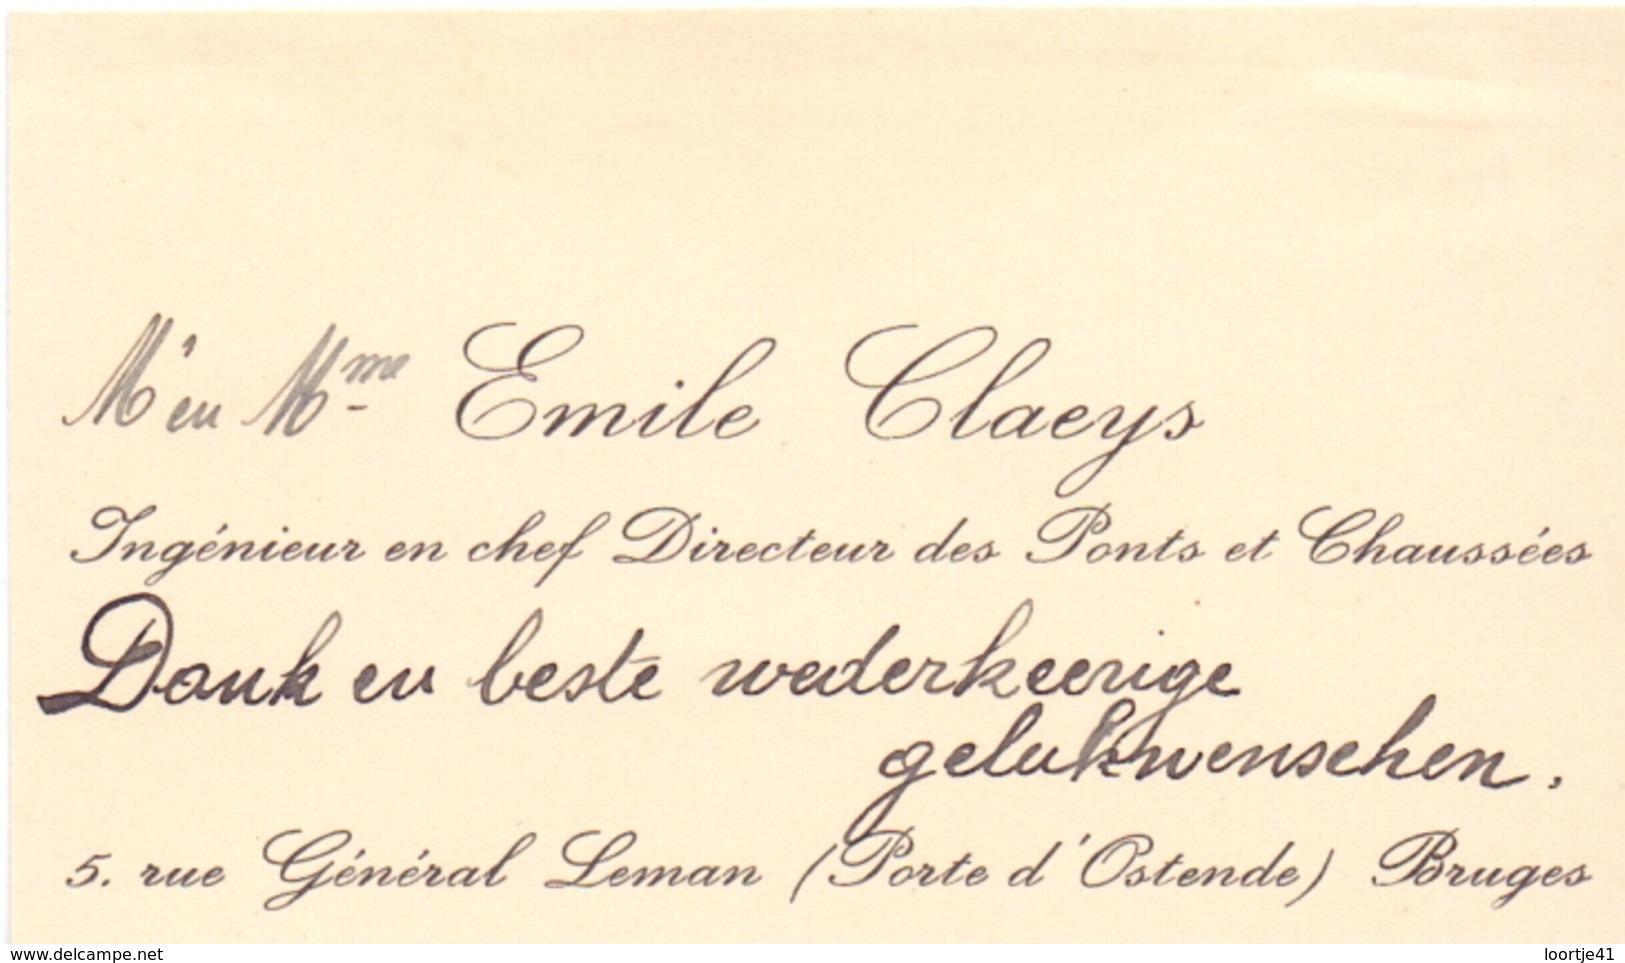 Mr en Mme Emile Claeys
Ingénieur en chef Directeur des Ponts et Chaussées
Dank en beste wederkeerige
gelukwenschen.
5. rue Général Leman (Porte d'Ostende) Bruges
www.delcampe.net
loortje41